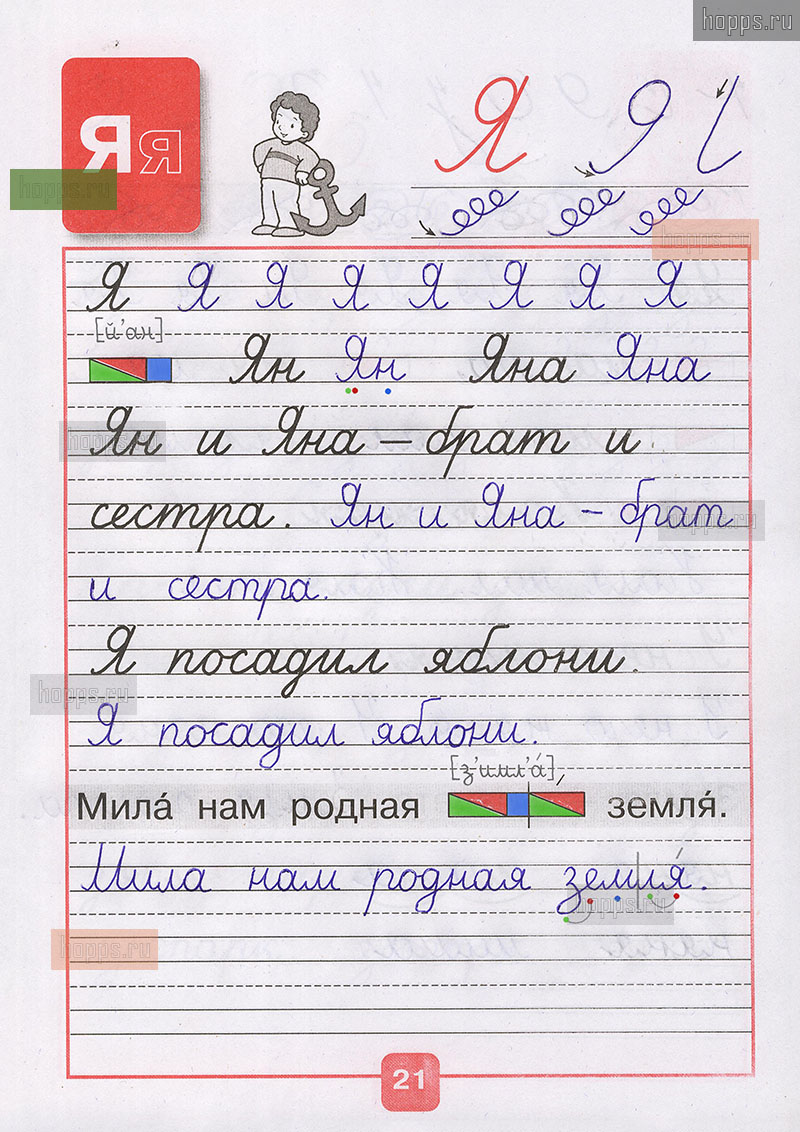 hopps.ru
Я я
Я
hopps.ru
hopps.ru
Я Я Я Я Я Я Я Я
[й'ан]
Ян Ян Яна Яна
Ян и Яна – брат и
hopps.ru
сестра. Ян и Яна – брат
hopps.ru
и сестра.
Я посадил яблони.
hopps.ru
Я посадил яблони.
[з'имл'а́],
Мила́ нам родная земля́.
Мила нам родная земля́.
hopps.ru
hopps.ru
21